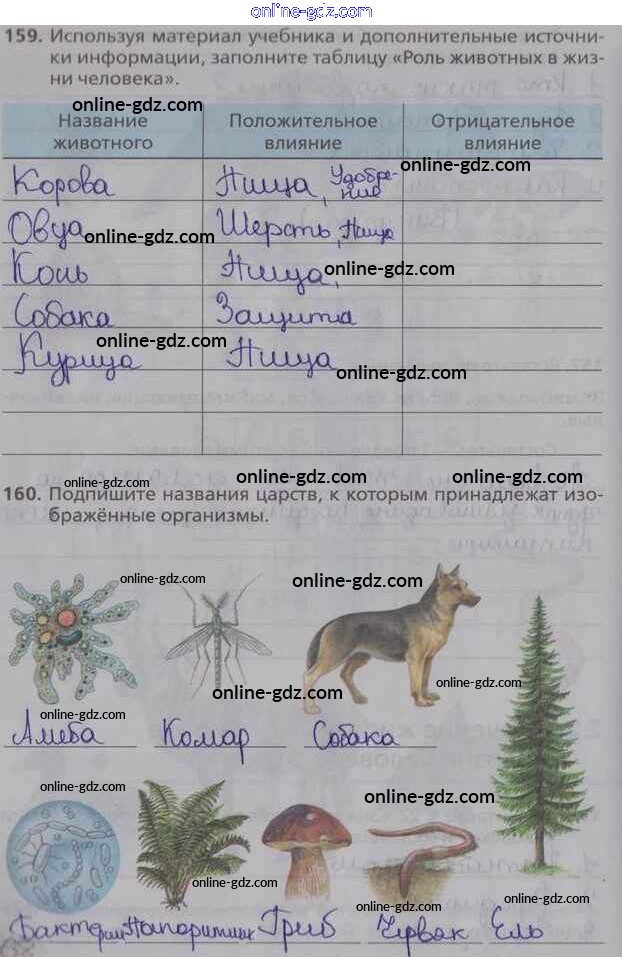 online-gdz.com
159. Используя материал учебника и дополнительные источни-
ки информации, заполните таблицу «Роль животных в жиз-
ни человека».
online-gdz.com
Название животного
Положительное влияние
Отрицательное влияние
online-gdz.com
Корова Пища, Удобрение
Овца online-gdz.com Шерсть, Пища
Конь Пища, online-gdz.com
Собака Защита
online-gdz.com
Курица Пища
online-gdz.com
online-gdz.com online-gdz.com online-gdz.com
160. Подпишите названия царств, к которым принадлежат изо-
бражённые организмы.
online-gdz.com online-gdz.com
online-gdz.com
online-gdz.com
Амеба Комар Собака
online-gdz.com
online-gdz.com
online-gdz.com
online-gdz.com online-gdz.com
Бактерии Папоротник Гриб Червяк Ель
online-gdz.com